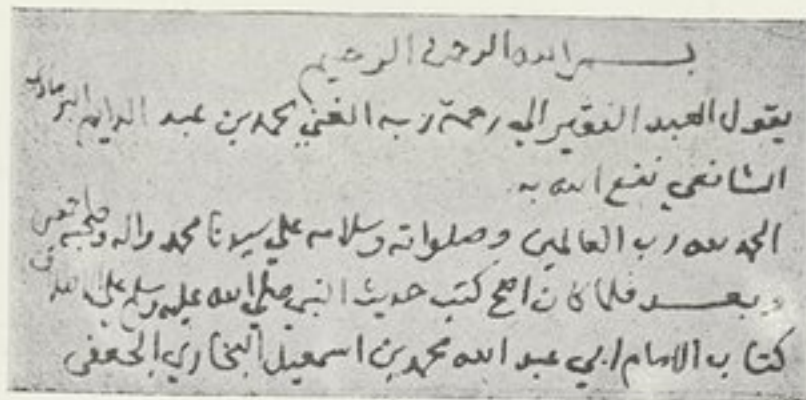 بسم الله الرحمن الرحيم
يقول العبد الفقير الي رحمة ربه الغني محمد بن عبد الدايم البرماوي
الشافعي نفع الله به
الحمد لله رب العالمين وصلواته وسلامه علي سيدنا محمد واله وصحبه
وبعد فلما كان اصح كتب حديث النبي صلي الله عليه وسلم علي
كتاب الامام ابي عبد الله محمد بن اسمعيل البخاري الجعفي